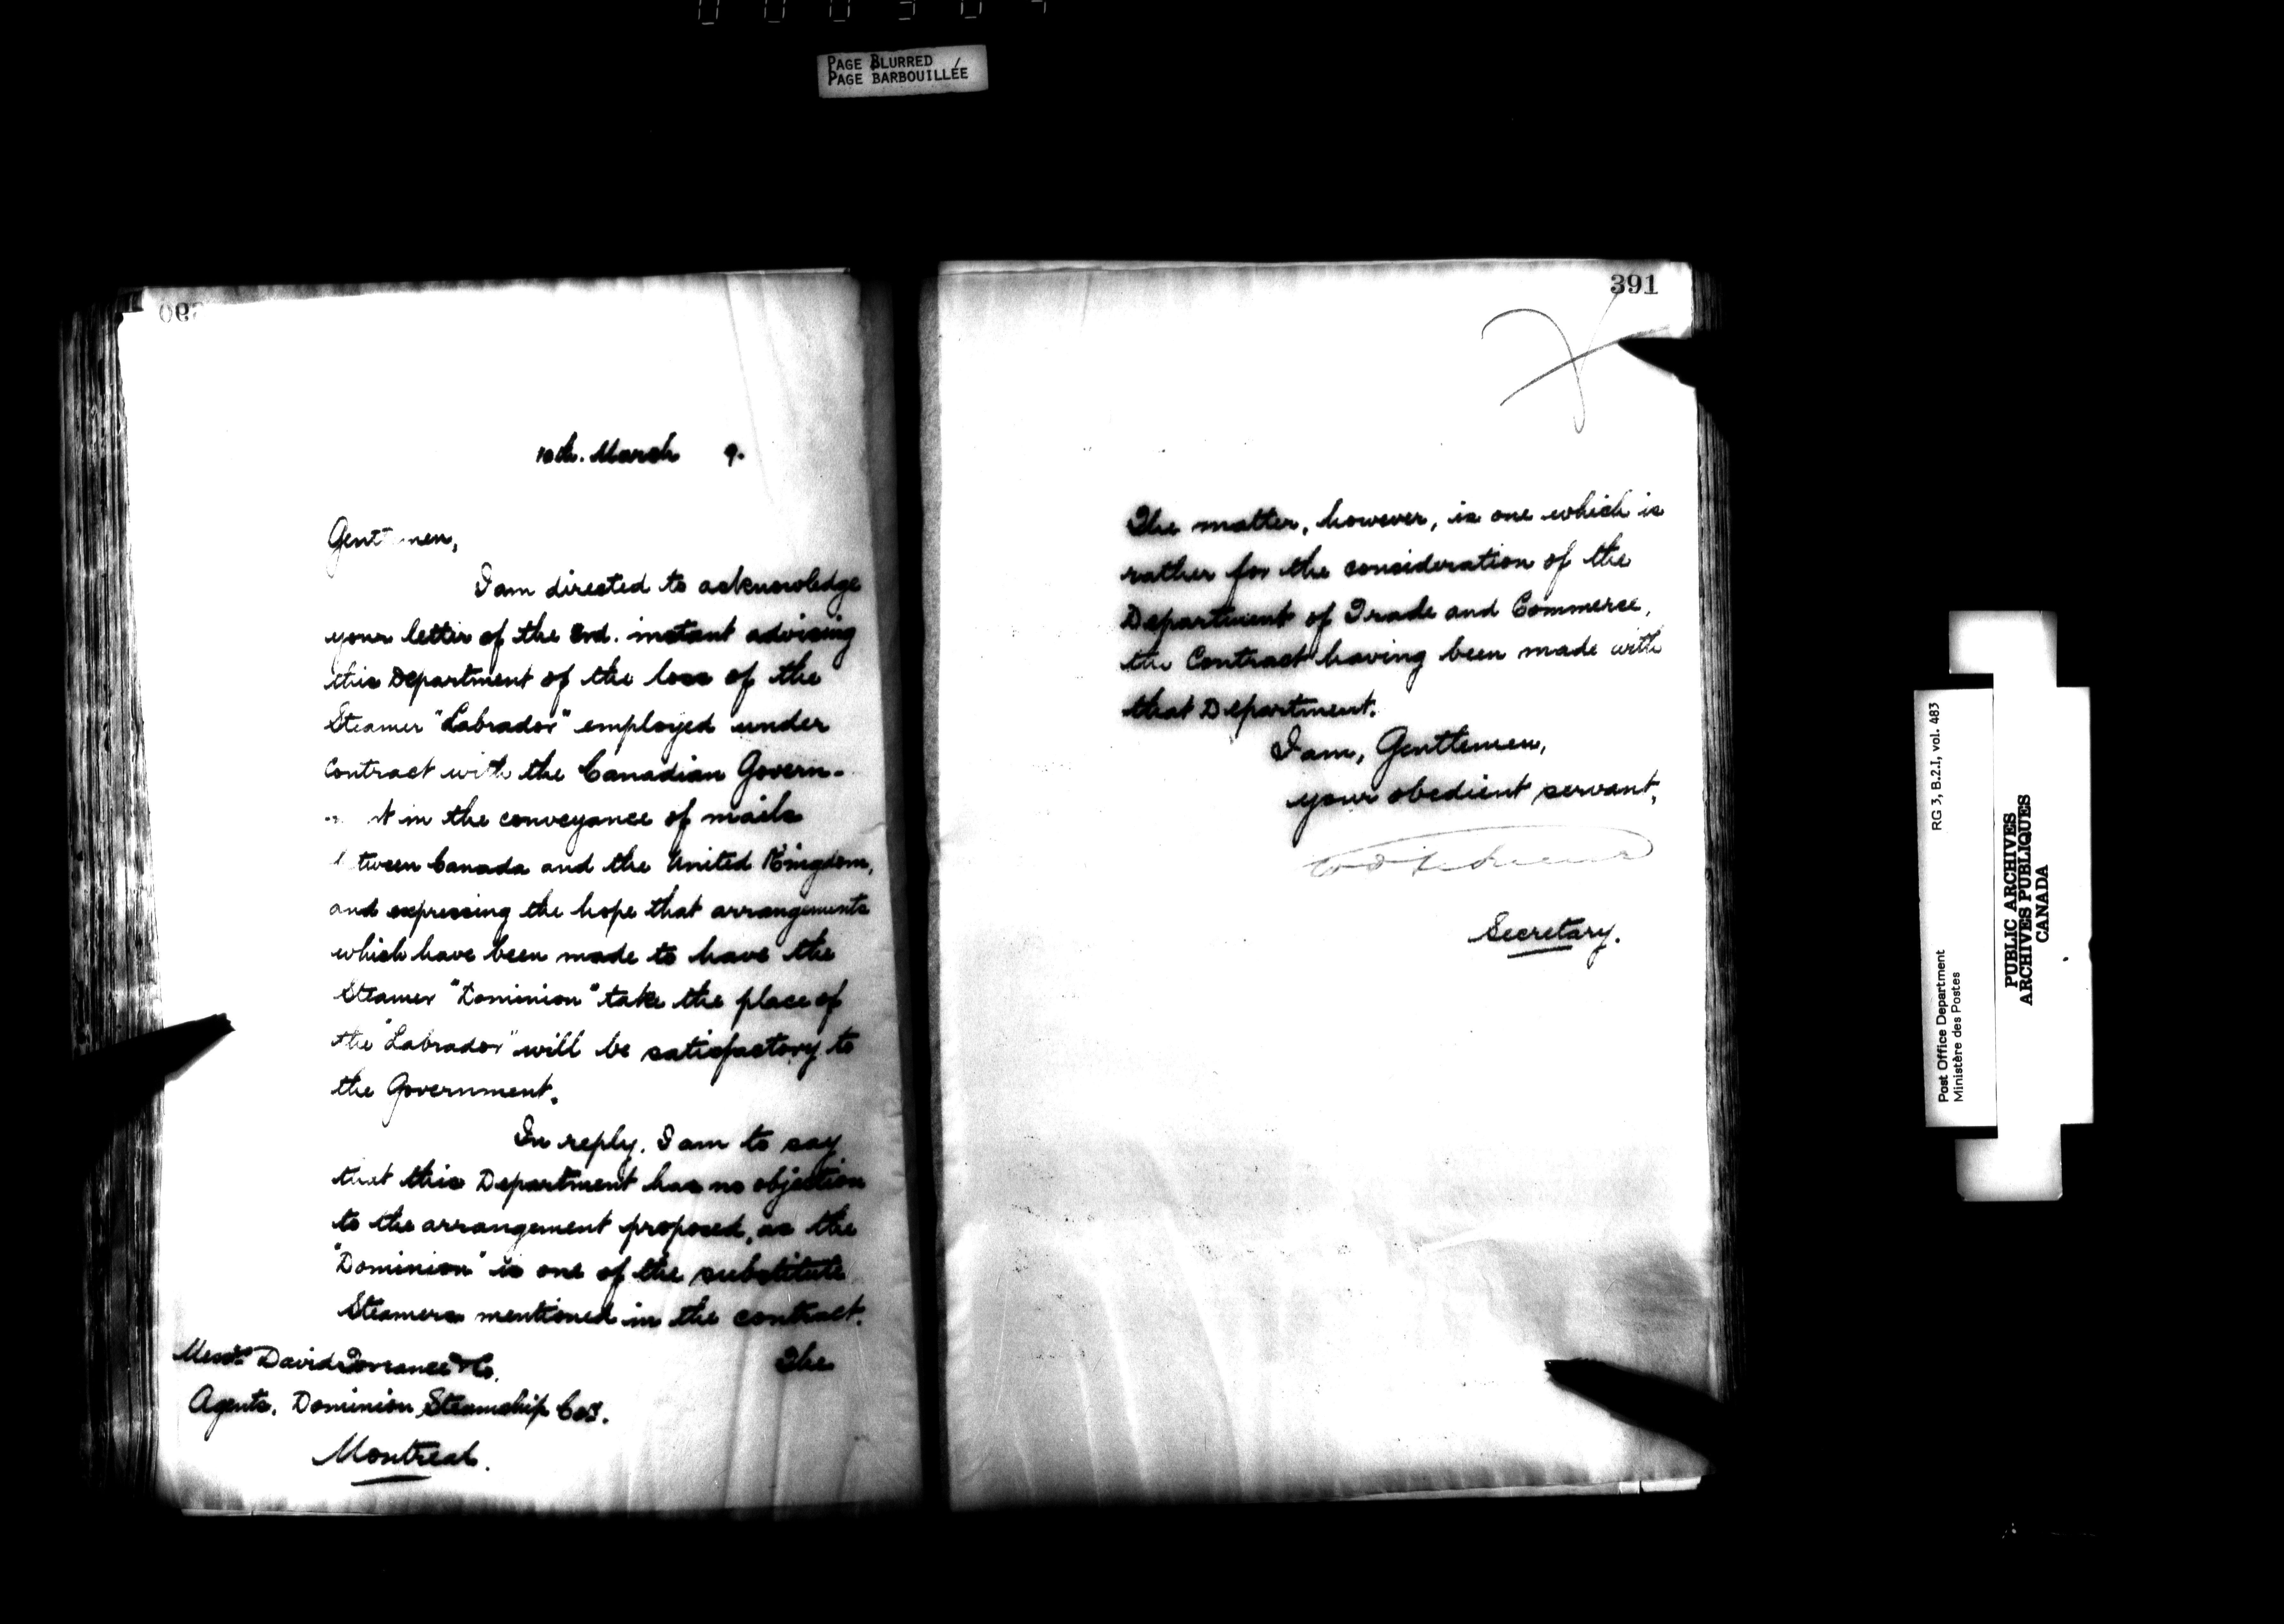 PAGE BLURRED
PAGE BARBOUILLÉE
10th. March 9.
Gent men,
I am directed to acknowledge
your letter of the 2nd. instant advising
this Department of the loss of the
Steamer "Labrador" employed under
Contract with the Canadian Govern-
t in the conveyance of mails
tween Canada and the United Kingdom,
and expressing the hope that arrangements
which have been made to have the
Steamer "Dominion" take the place of
the "Labrador" will be satisfactory to
the Government.
In reply, I am to say
that this Department has no objection
to the arrangement proposed, as the
"Dominion" is one of the substitute
Steamers mentioned in the contract.
The
Messrs David Torrance & Co.
Agents, Dominion Steamship Coy.
Montreal.
391
The matter, however, is one which is
rather for the consideration of the
Department of Trade and Commerce,
the Contract having been made with
that Department.
I am, Gentlemen,
your obedient servant,
Secretary.
Post Office Department
Ministère des Postes
RG 3, B.2.I, vol. 483
PUBLIC ARCHIVES
ARCHIVES PUBLIQUES
CANADA